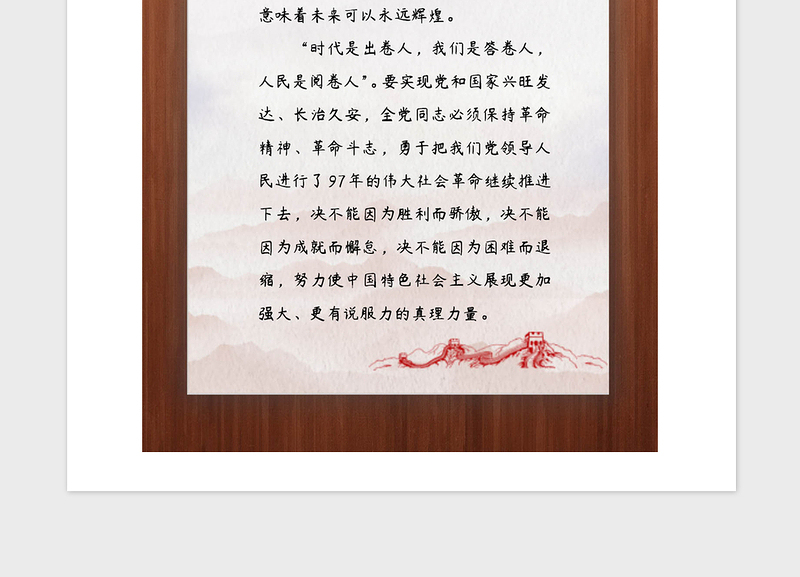 意味着未来可以永远辉煌。
“时代是出卷人，我们是答卷人，
人民是阅卷人”。要实现党和国家兴旺发
达、长治久安，全党同志必须保持革命
精神、革命斗志，勇于把我们党领导人
民进行了97年的伟大社会革命继续推进
下去，决不能因为胜利而骄傲，决不能
因为成就而懈怠，决不能因为困难而退
缩，努力使中国特色社会主义展现更加
强大、更有说服力的真理力量。